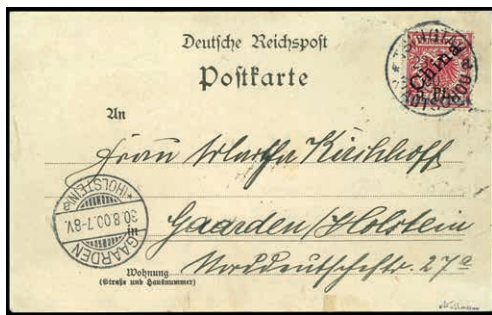 Deutsche Reichspost
Postkarte
China
An
Frau Martha Kirchhoff
in Gaarden/Holstein
Wohnung Norddeutschestr. 27a
(Straße und Hausnummer)
GAARDEN
*(HOLSTEIN)*
30.8.00.7-8V.